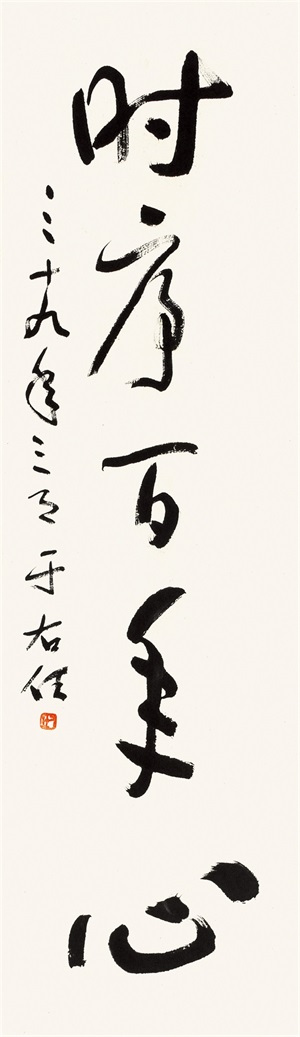 时序百年心
三十九年三月 于右任